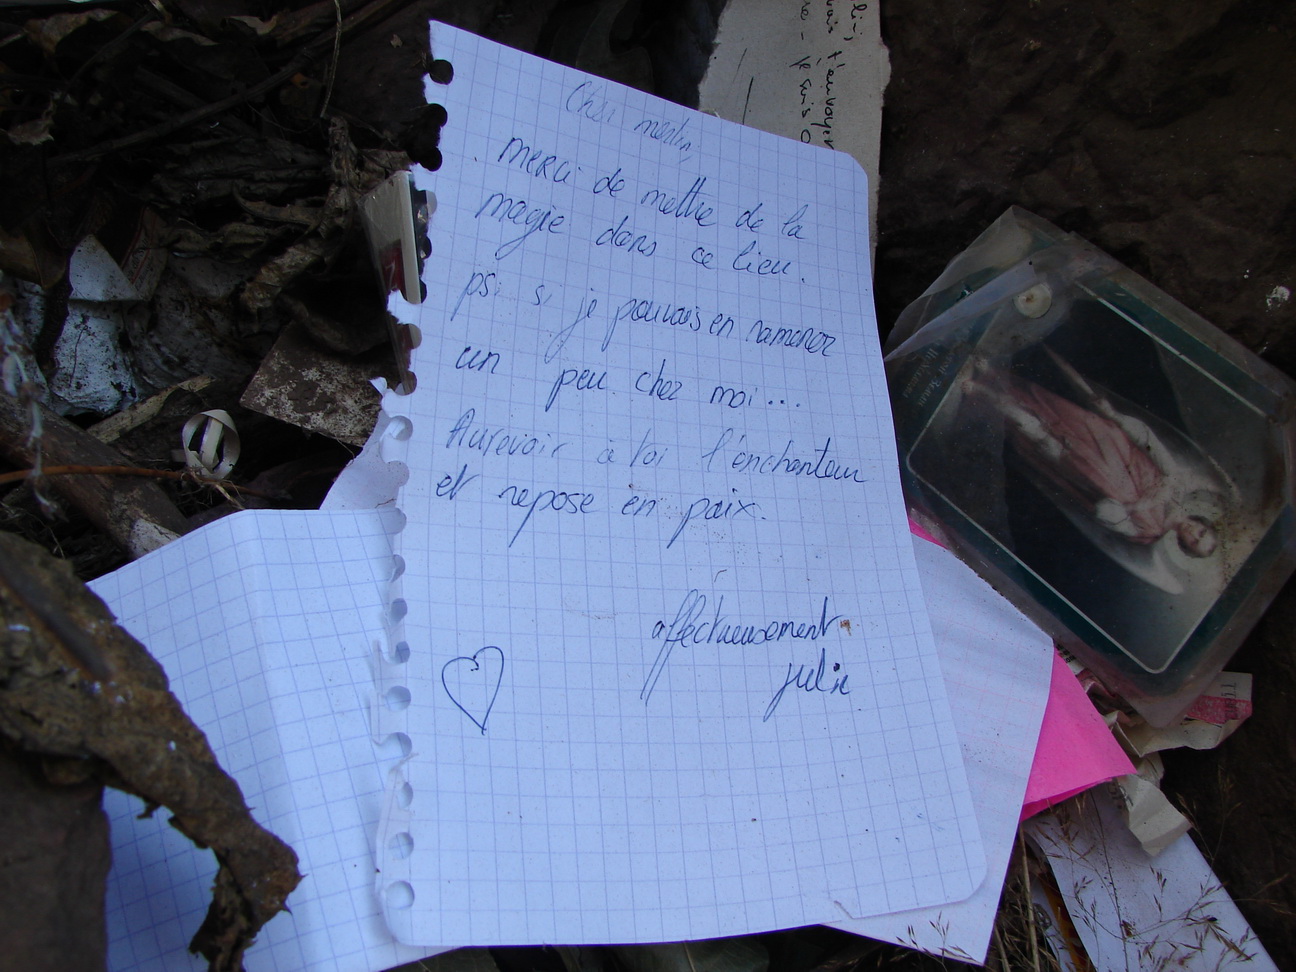 Cher merlin,
merci de mettre de la
magie dans ce lieu.
ps: si je pouvais en ramener
un peu chez moi...
Aurevoir à toi l'enchanteur
et repose en paix.
affectueusement
julie
t'envoyer
je suis